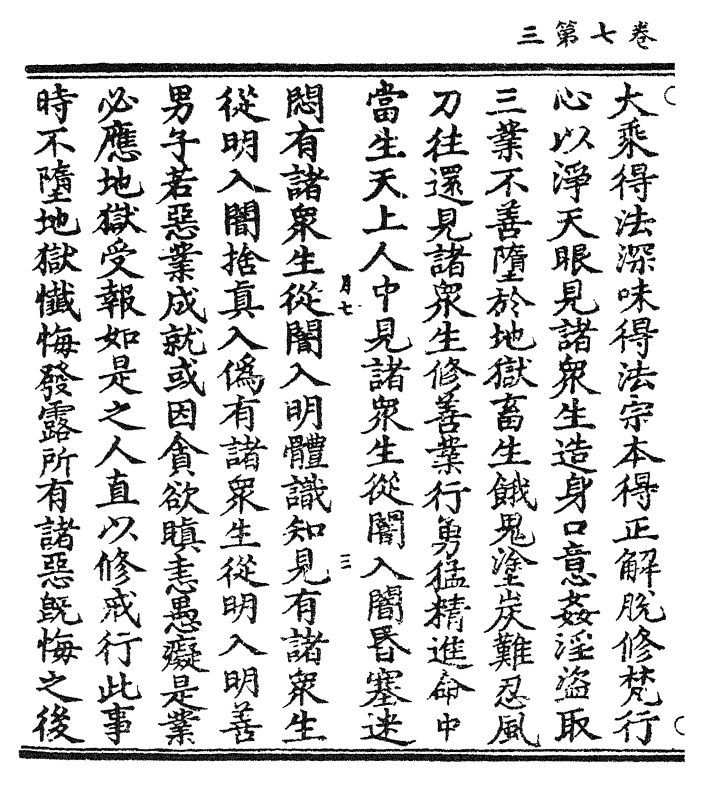 卷七第三
大乘得法深味得法宗本得正解脫修梵行
心以淨天眼見諸衆生造身口意姦淫盜取
三業不善墮於地獄畜生餓鬼塗炭難忍風
刀往還見諸衆生修善業行勇猛精進命中
當生天上人中見諸衆生從闇入闇昏塞迷
月七
三
悶有諸衆生從闇入明體識知見有諸衆生
從明入闇捨真入僞有諸衆生從明入明善
男子若惡業成就或因貪欲瞋恚愚癡是業
必應地獄受報如是之人直以修戒行此事
時不墮地獄懺悔發露所有諸惡旣悔之後